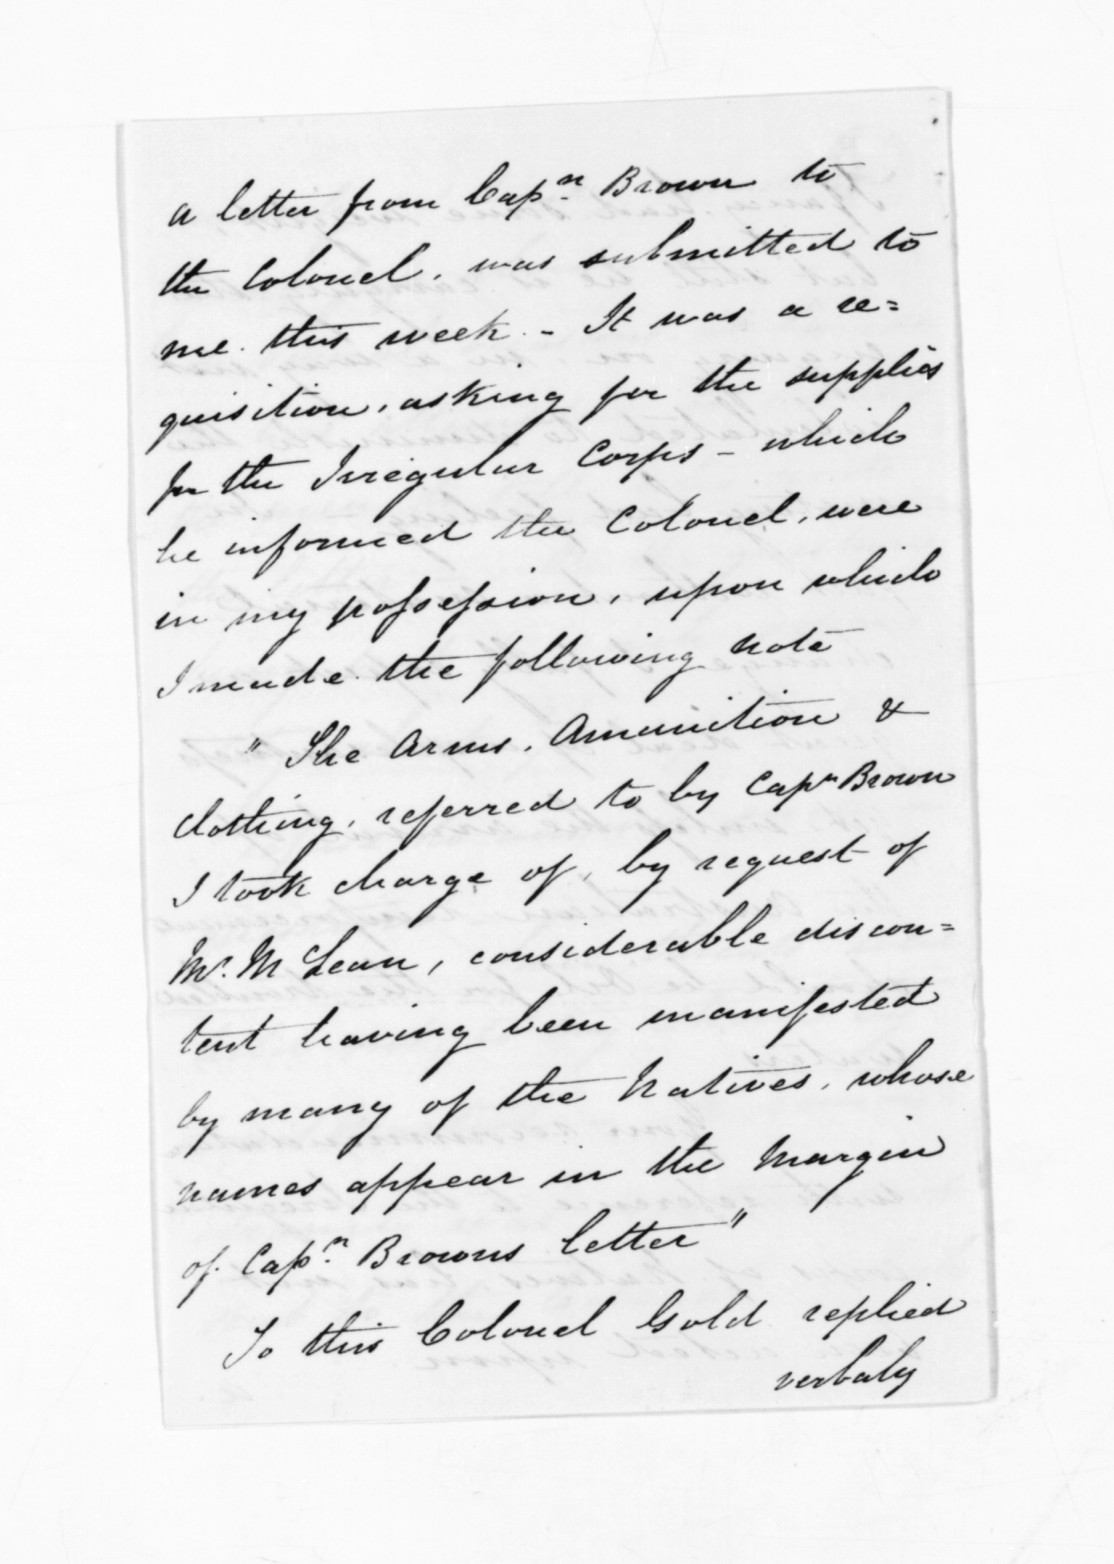 a letter from Capn. Brown to
the Colonel. was submitted to
me. this week. - It was a re=
quisition, asking for the supplies
for the Irregular Corps - which
he informed the Colonel, were
in my possession, upon which
I made. the following note
" The Arms. Amunition &
clothing, referred to by Capn Brown
I took charge of, by request of
Mr. McLean, considerable discon=
tent having been manifested
by many of the Natives, whose
names appear in the Margin
of. Capn. Browns letter"
To this Colonel Gold replied
verbaly